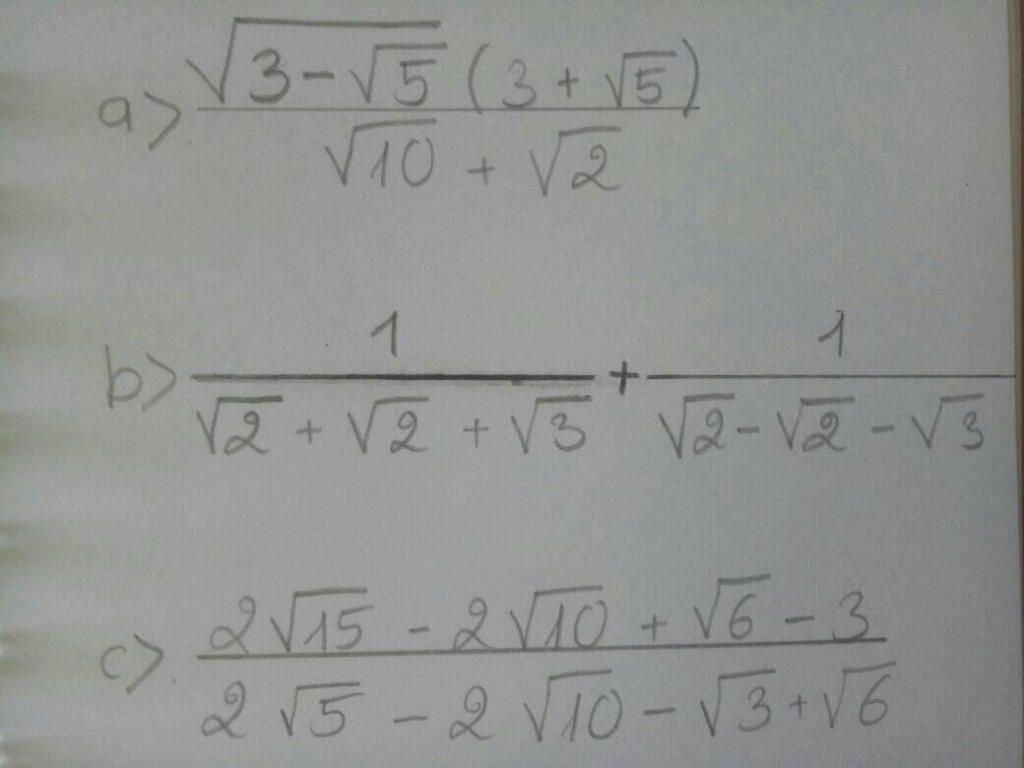 a> \frac{\sqrt{3-\sqrt{5}} (3+\sqrt{5})}{\sqrt{10}+\sqrt{2}}
b> \frac{1}{\sqrt{2}+\sqrt{2}+\sqrt{3}} + \frac{1}{\sqrt{2}-\sqrt{2}-\sqrt{3}}
c> \frac{2\sqrt{15}-2\sqrt{10}+\sqrt{6}-3}{2\sqrt{5}-2\sqrt{10}-\sqrt{3}+\sqrt{6}}